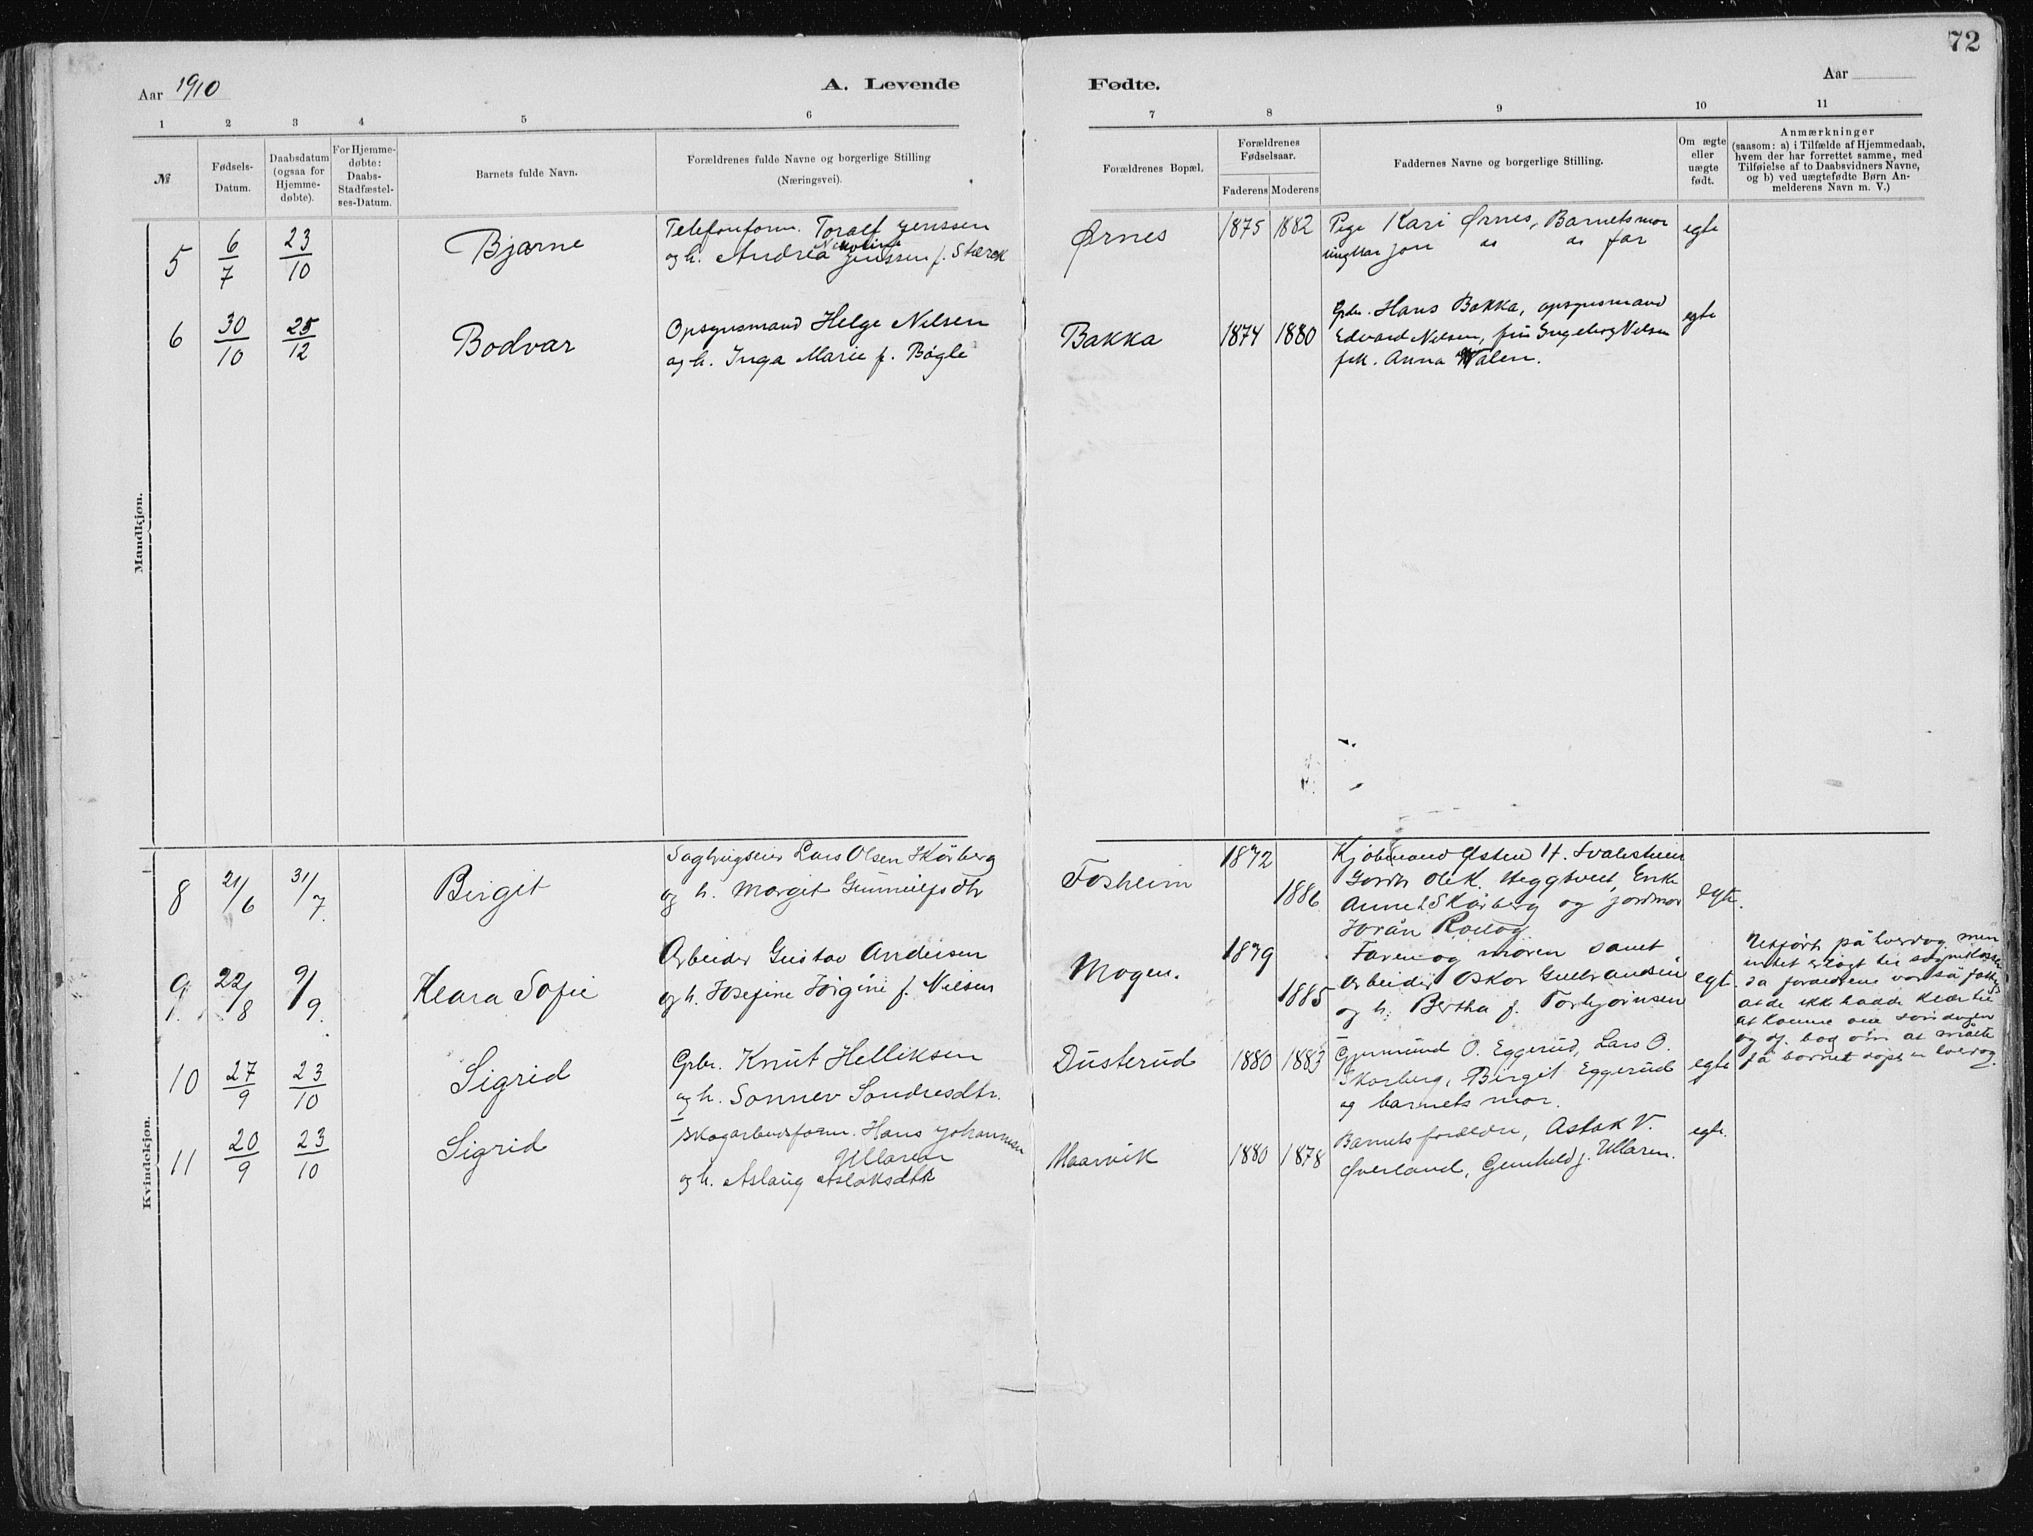 72
Aar 1910
A. Levende
Fødte.
Aar
1 2 3 4 5 6 7 8 9 10 11
№
Fødsels-
Datum.
Daabsdatum
(ogsaa for
Hjemme-
døbte).
For Hjemme-
døbte:
Daabs-
Stadfæstel-
ses-Datum.
Barnets fulde Navn.
Forældrenes fulde Navne og borgerlige Stilling
(Næringsvei).
Forældrenes Bopæl.
Forældrenes
Fødselsaar.
Faderens Moderens
Faddernes Navne og borgerlige Stilling.
Om ægte
eller
uægte
født.
Anmærkninger
(saasom: a) i Tilfælde af Hjemmedaab,
hvem der har forrettet samme, med
Tilføielse af to Daabsvidners Navne,
og b) ved uægtefødte Børn An-
melderens Navn m. V.)
Mandkjøn.
5 6/7 23/10 Bjarne
Telefonform. Toralf Jenssen
og h. Andrea Nicoline Jenssen f. Stærek
Ørnes 1875 1882
Pige Kari Ørnes, Barnets mor
ungkar Jon do do far
egte
6 30/10 25/12 Bodvar
Opsynsmand Helge Nilsen
og h. Inga Marie f. Bøgle
Bakka 1874 1880
Gbr. Hans Bakka, opsynsmand
Edvard Nilsen, fru Ingeborg Nilsen
frk. Anna Walen.
egte
Kvindekjøn.
8 21/6 31/7. Birgit
Sagbrugseier Lars Olsen Skårberg
og h. Margit Gunneifsdtr
Fosheim 1872 1886
Kjøbmand Østen H. Svalestuen
Gordbr Ole K. Heggtveit, Enke
Anne L Skårberg og jordmor
Jorån
egte.
9 22/8 9/9. Klara Sofie
Arbeider Gustav Andersen
og h. Josefine Jørgine f. Nilsen
Mogen. 1879 1885
Faren og moren samt
Arbeider Oskar Gulbrandsen
og h. Bertha f. Torbjørnsen
egt.
Utført på hverdag men
intet erlagt til sognekassen
da forældrene var så fattige
at de ikke hadde klær til
at komme om søndagen
og dj. bad om at måtte
få barnet døpt en hverdag.
10 27/9 23/10 Sigrid
Gbr. Knut Helliksen
og h. Sonnev Sondresdtr.
Dusterud 1880 1883
Gjermund O. Eggerud, Lars O.
Skarberg, Birgit Eggerud
og barnets mor.
egte
11 20/9 23/10 Sigrid
Skogarbeidsform. Hans Johannesen
Ullaren
og h. Aslaug Aslaksdtr
Maarvik 1880 1878
Barnets forældre, Aslak V.
Øverland, Gunhild J. Ullaren.
egte.